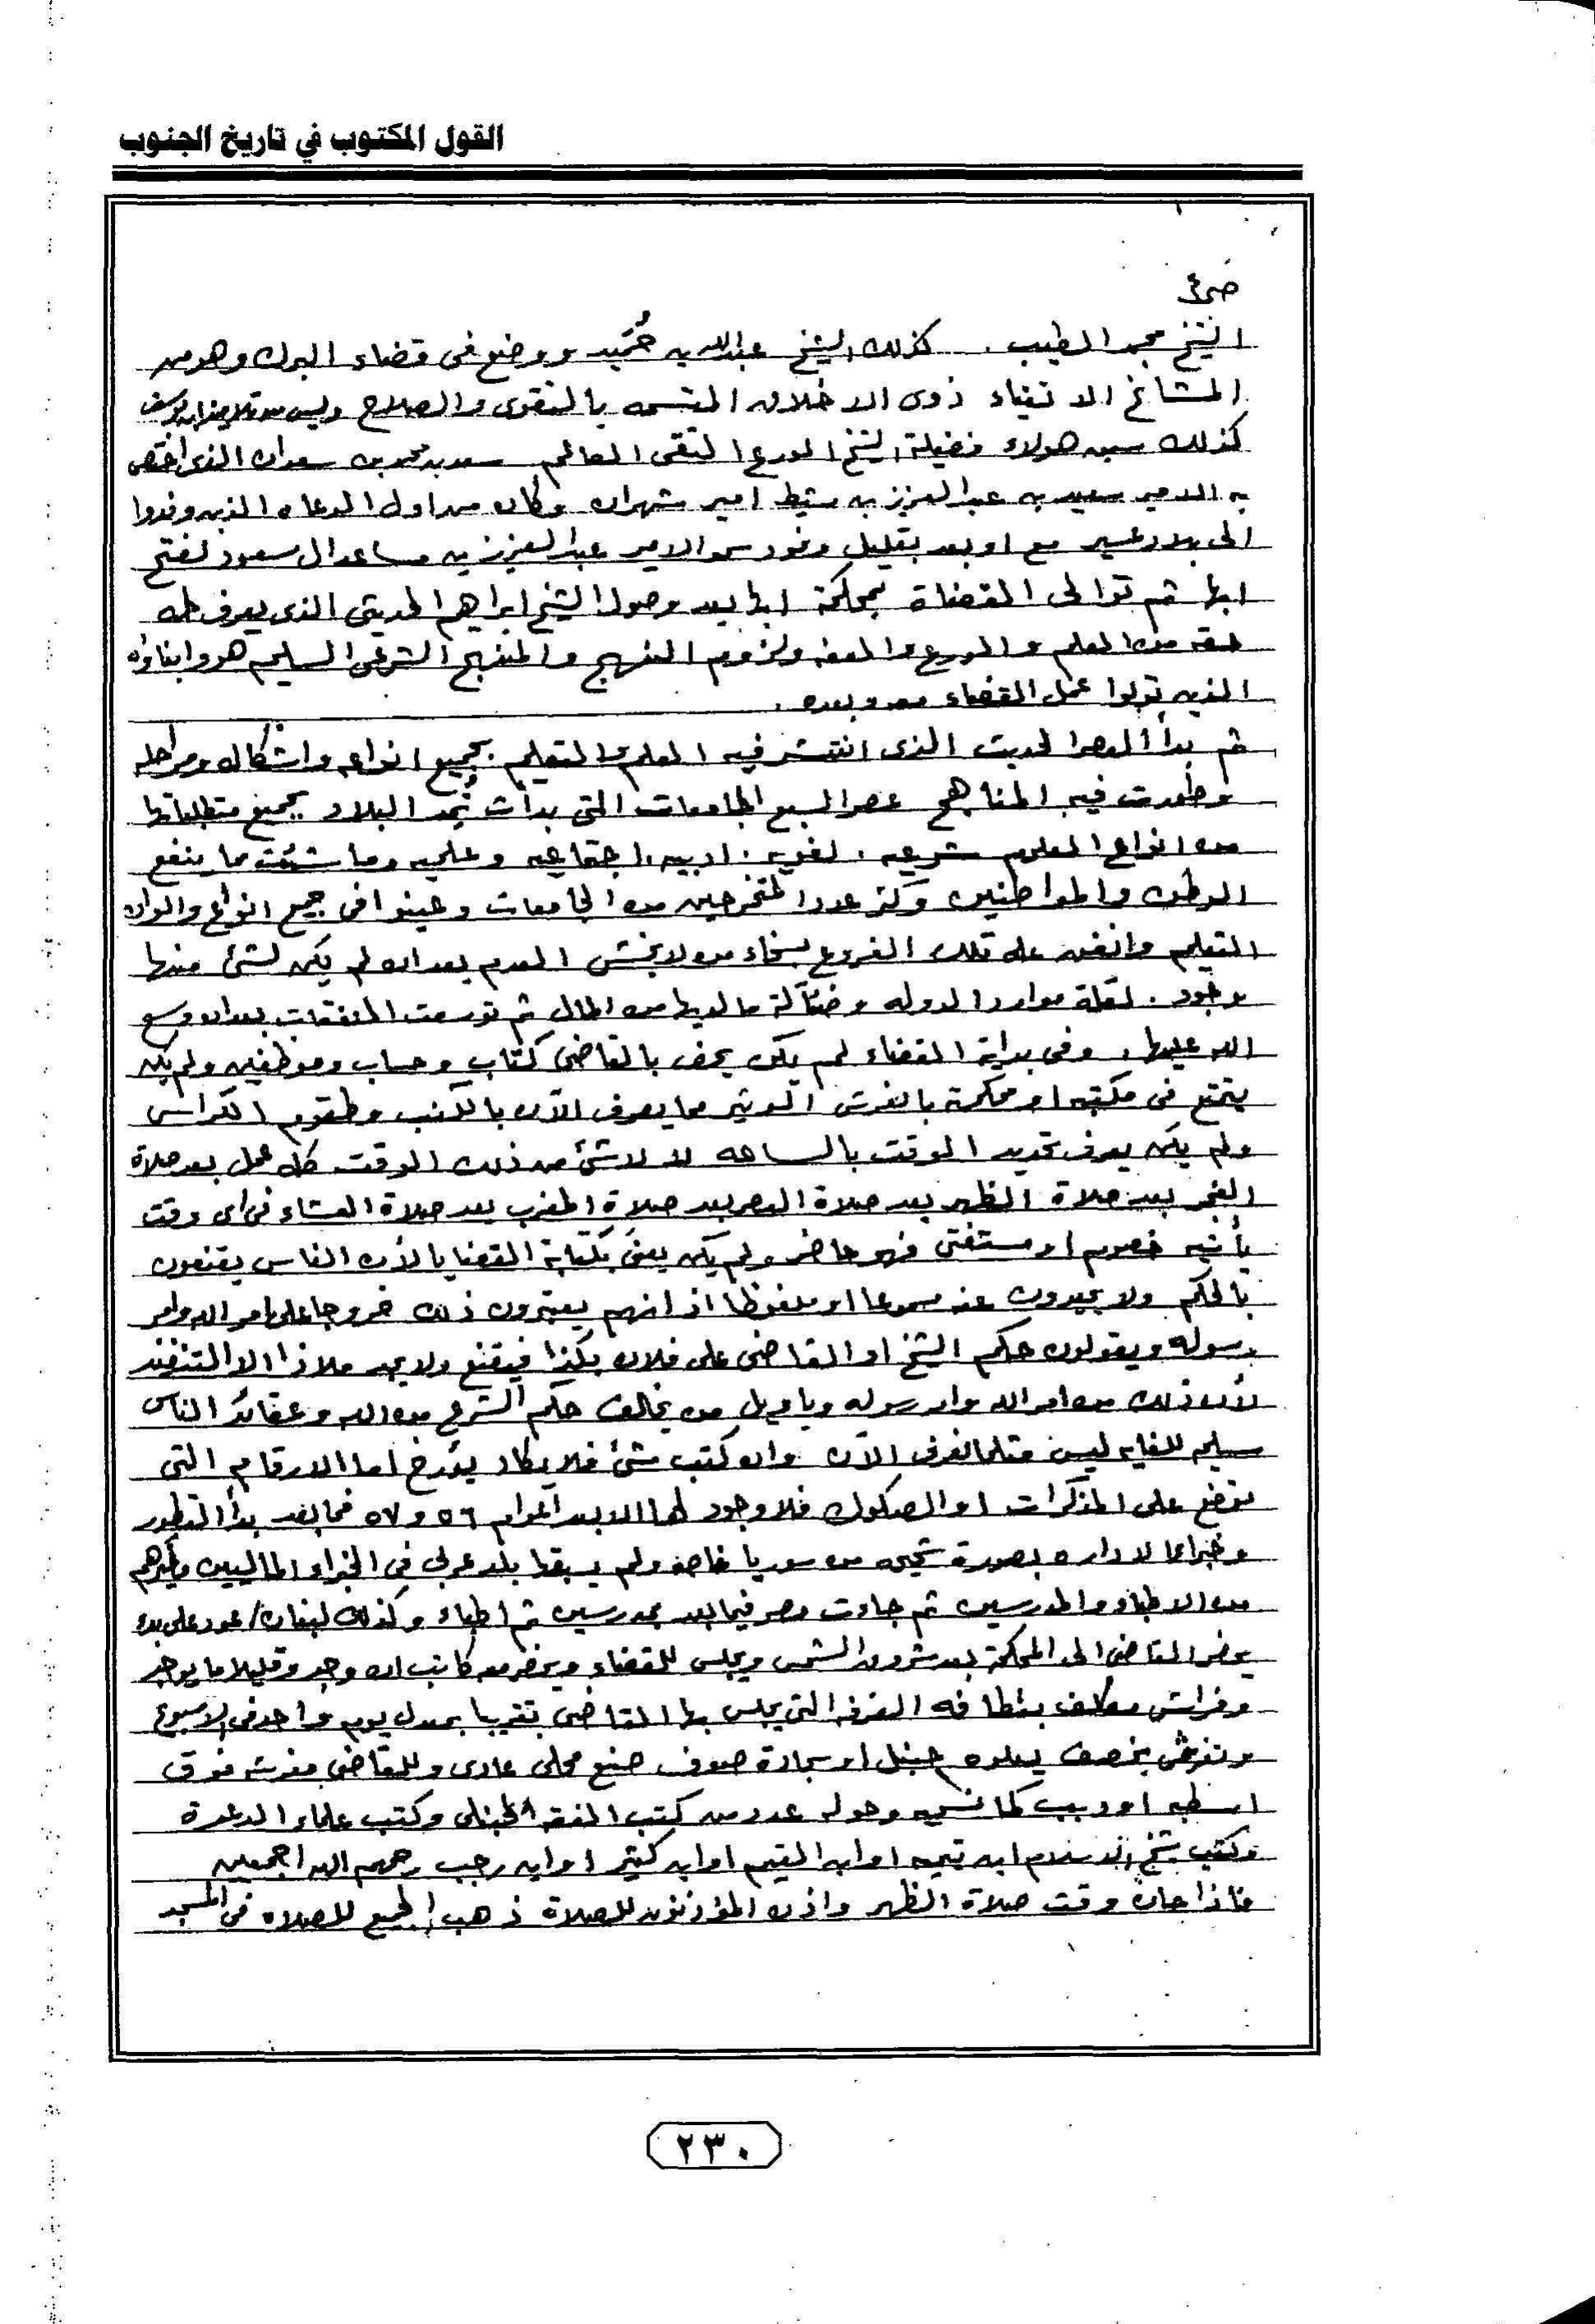 القول المكتوب في تاريخ الجنوب
ص٤
الشيخ محمد الطيب . كذلك الشيخ عبدالله بن حُمَيد ووضع فى قضاء البرك وهو من
المشائخ الاتقياء ذوى الاخلاق المتسمه بالتقوى والصلاح وليس من تلاميذ ابن يوسف
كذلك سبق هولاء فضيلة الشيخ الورع التقى العالم سعد بن محمد بن سعدان الذى اختص
به الامير سعيد بن عبدالعزيز بن مشيط امير شهران وكان من اول الدعاه الذين وفدوا
الى بلاد عسير مع او بعد بقليل وفود سمو الامير عبدالعزيز بن مساعد ال سعود لفتح
ابها ثم توالى القضاة بمحكمة ابها بعد وصول الشيخ ابراهيم الحديثى الذى يعرف له
حقه من العلم والورع والعفه ولزوم النهج والمنهج الشرعى السليم هو وابناؤه
الذين تولوا عمل القضاء معه وبعده .
ثم بدأ العصر الحديث الذى انتشر فيه العلم والتعليم بجميع انواعه واشكاله ومراحله
وطورت فيه المناهج عصر السبع الجامعات التى بدأت تُمِد البلاد بجميع متطلباتها
من انواع العلوم شرعيه . لغويه . ادبيه . اجتماعيه وعلميه وما شئت مما ينفع
الوطن والمواطنين وكثر عدد المتخرجين من الجامعات وعينوا فى جميع انواع والوان
التعليم وانفق على تلك الفروع بسخاء من لا يخشى العدم بعد ان لم يكن لشئ منها
وجود . لقلة موارد الدوله وضئآلة ما لديها من المال ثم توسعت النفقات بعد ان وسع
الله عليها . وفى بداية القضاء لم يكن يحف بالقاضى كتاب وحساب وموظفين ولم يكن
يتمتع فى مكتبه او محكمة بالفرش الوثير مما يعرف الآن بالكنب وطقوم الكراسى
ولم يكن يعرف تحديد الوقت بالساعه لا لا شئ من ذلك الوقت كله عمل بعد صلاة
الفجر بعد صلاة الظهر بعد صلاة العصر بعد صلاة المغرب بعد صلاة العشاء فى اى وقت
يأتيه خصوم او مستفتى فهو حاضر ولم يكن يعنى بكتابة القضايا لأن الناس يقنعون
بالحكم ولا يحيدون عنه مسموعا او ملفوظا اذ انهم يعتبرون ذلك خروجا على امر الله وامر
رسوله ويقولون حكم الشيخ او القاضى على فلان بكذا فيقنع ولا يجد ملاذا الا التنفيذ
لأن ذلك من امر الله وامر رسوله وياويل من يخالف حكم الشرع من الله وعقائد الناس
سليمه للغايه ليس مثلما نعرف الآن وان كتب شئ فلا يكاد يؤرخ اما الارقام التى
توضع على المذكرات او الصكوك فلا وجود لها الا بعد اعوام ٥٦ و ٥٧ فما بعد بدأ التطور
وخبراء الاداره بصورة شحيحه من سوريا خاصه ولم يسبقها بلد عربى فى الخبراء الماليين وغيرهم
من الاطباء والمدرسين ثم جاءت مصر فيما بعد بمدرسين ثم اطباء وكذلك لبنان / عود على بدء
يحضر القاضى الى المحكمة بعد شروق الشمس ويجلس للقضاء ويحضر معه كاتب ان وجد وقليلا ما يوجد
وفراش مكلف بنظافه الغرفه التى يجلس بها القاضى تقريبا بمعدل يوم واحد فى الاسبوع
وتفرش بخصف يعلوه حنبل او سجادة صوف صنع محلى عادى وللقاضى مفرشه فوق
اسطبه او دبب كما نسميه وحوله عدد من كتب الفقه الحنبلى وكتب علماء الدعوة
وكتب شيخ الاسلام ابن تيميه او ابن القيم او ابن كثير او ابن رجب رحمهم الله اجمعين
فاذا جاء وقت صلاة الظهر واذن المؤذنون للصلاة ذهب الجميع للصلاه فى المسجد
٢٣٠